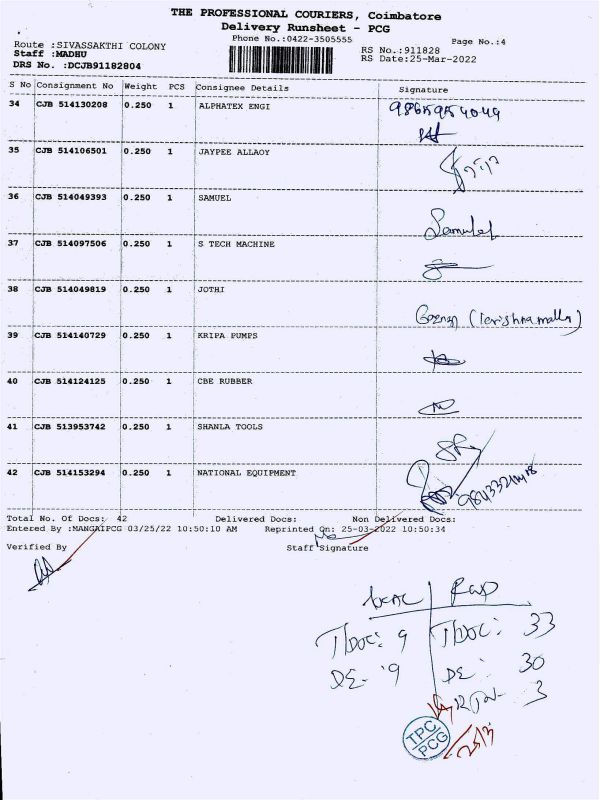 THE PROFESSIONAL COURIERS, Coimbatore
Delivery Runsheet - PCG
Phone No.:0422-3505555
Page No.:4
Route :SIVASSAKTHI COLONY
Staff :MADHU
DRS No. :DCJB91182804
RS No.:911828
RS Date:25-Mar-2022
S No Consignment No Weight PCS Consignee Details Signature
34 CJB 514130208 0.250 1 ALPHATEX ENGI
35 CJB 514106501 0.250 1 JAYPEE ALLAOY
36 CJB 514049393 0.250 1 SAMUEL
37 CJB 514097506 0.250 1 S TECH MACHINE
38 CJB 514049819 0.250 1 JOTHI
39 CJB 514140729 0.250 1 KRIPA PUMPS
40 CJB 514124125 0.250 1 CBE RUBBER
41 CJB 513953742 0.250 1 SHANLA TOOLS
42 CJB 514153294 0.250 1 NATIONAL EQUIPMENT
Total No. Of Docs: 42 Delivered Docs: Non Delivered Docs:
Entered By :MANGAIPCG 03/25/22 10:50:10 AM Reprinted On: 25-03-2022 10:50:34
Verified By Staff Signature
T/DOC: 9 T/DOC: 33
DE - 9 DE: 30
3
TPC
PCG
25/3